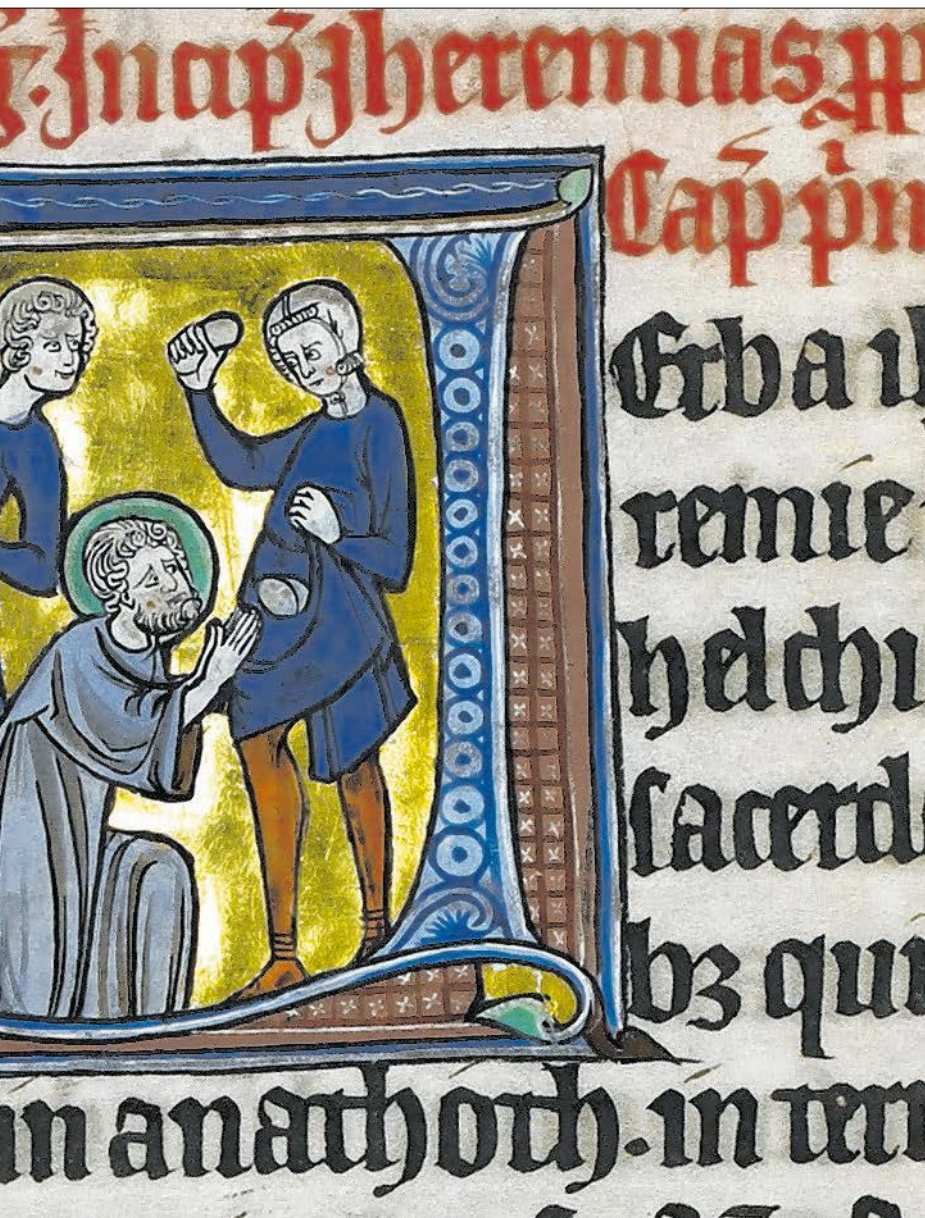 Incip̄ Jheremias
Cap̄ p̄m
Erba ih
remie
helchi
ſacerdo
bꝫ qui
in anathoth. in terr